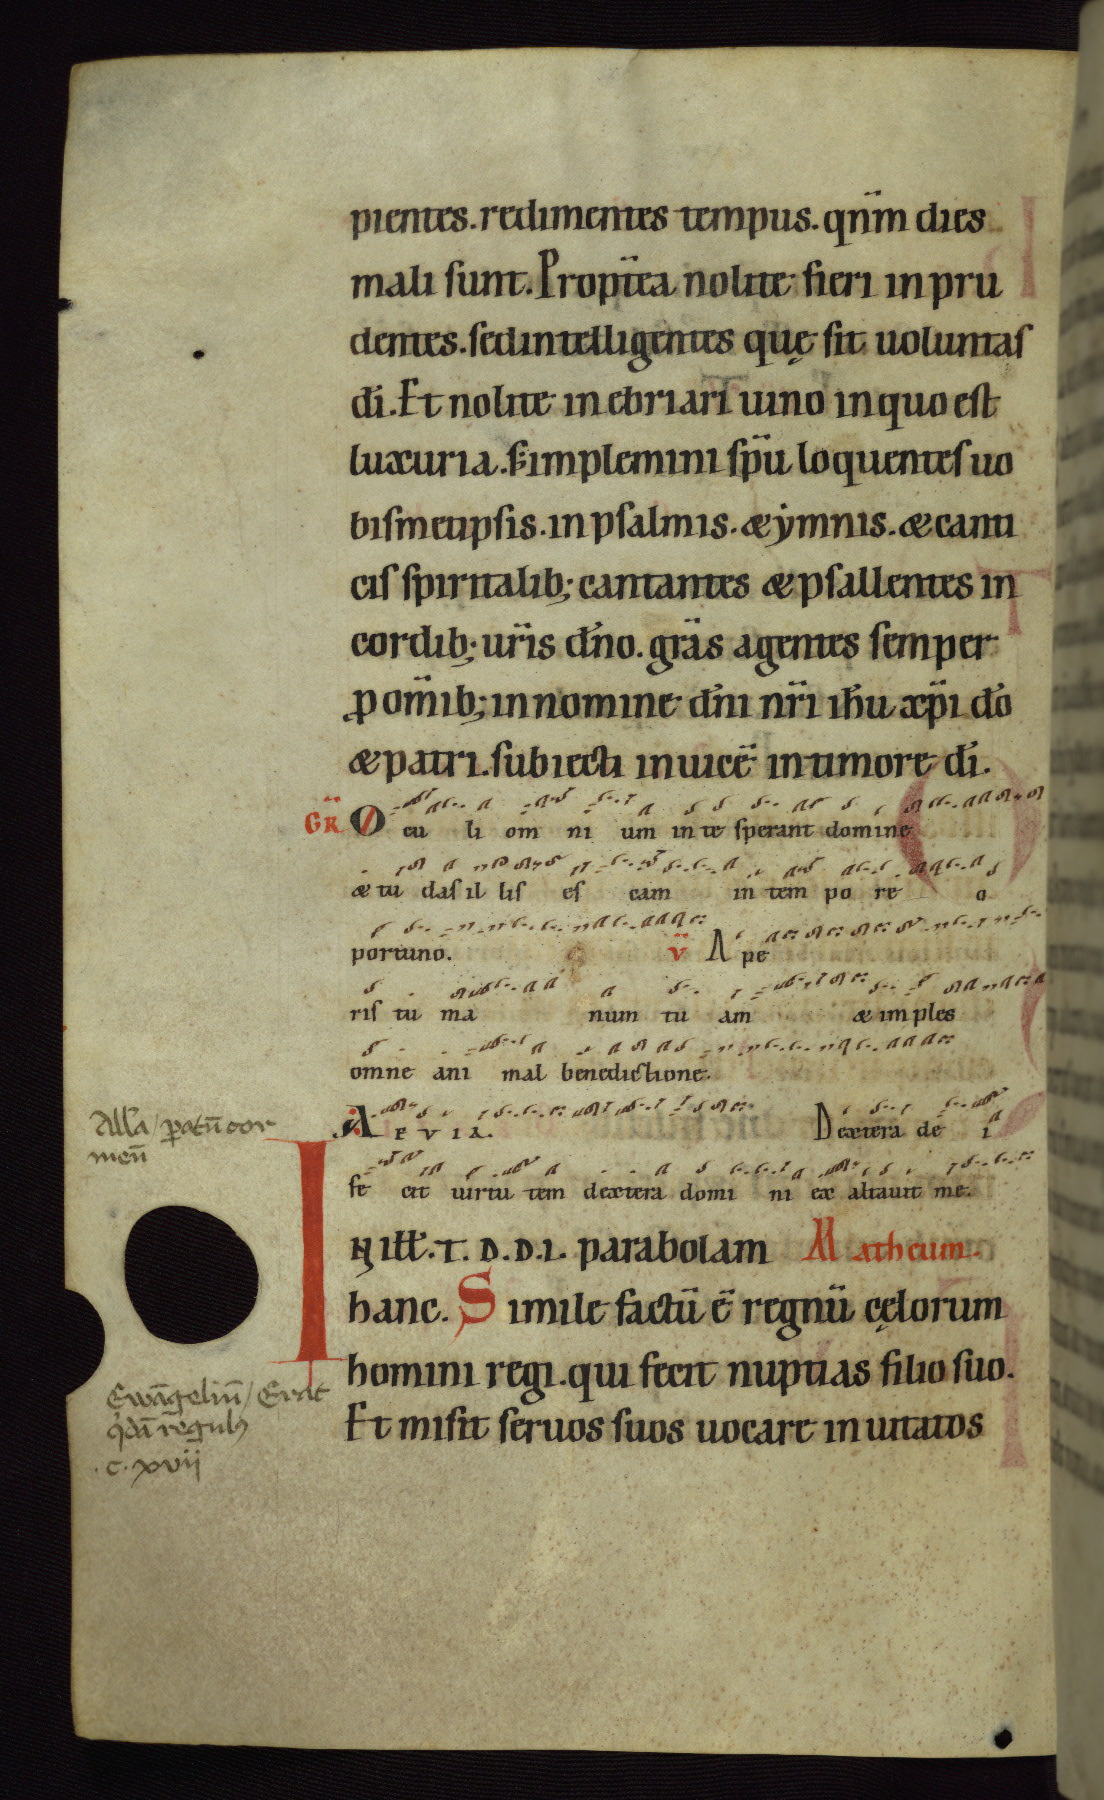 pientes. redimentes tempus. qnm̄ dies
mali sunt. Propt̄ea nolite fieri in pru
dentes. sed intelligentes quę sit uoluntas
dī. Et nolite inebriari uino in quo est
luxuria. s; implemini spū loquentes uo
bismetipsis. in psalmis. & ẏmnis. & canti
cis spiritalib; cantantes & psallentes in
cordib; ur̄is dn̄o. grās agentes semper
ꝓ om̄ib; in nomine dn̄i nr̄i ih̄u xp̄i dō
& patri. subiecti inuicē in timore dī.
GR̄ Ocu li om ni um in te sperant domine
& tu das il lis es cam in tem po re o
portuno. V̄ A pe
ris tu ma num tu am & im ples
omne ani mal benedictione.
A E V I A. Dextera de i
fe cit uirtu tem dextera domi ni ex altauit me.
Alla / ꝑatū cor
meū
IN ill̄. T. D. D. I. parabolam Matheum.
hanc. Simile factū ē regnū cęlorum
homini regi. qui fecit nuptias filio suo.
Et misit seruos suos uocare inuitatos
Ewāgeliū / Erat
qͥdā regulꝰ
.c. xvij